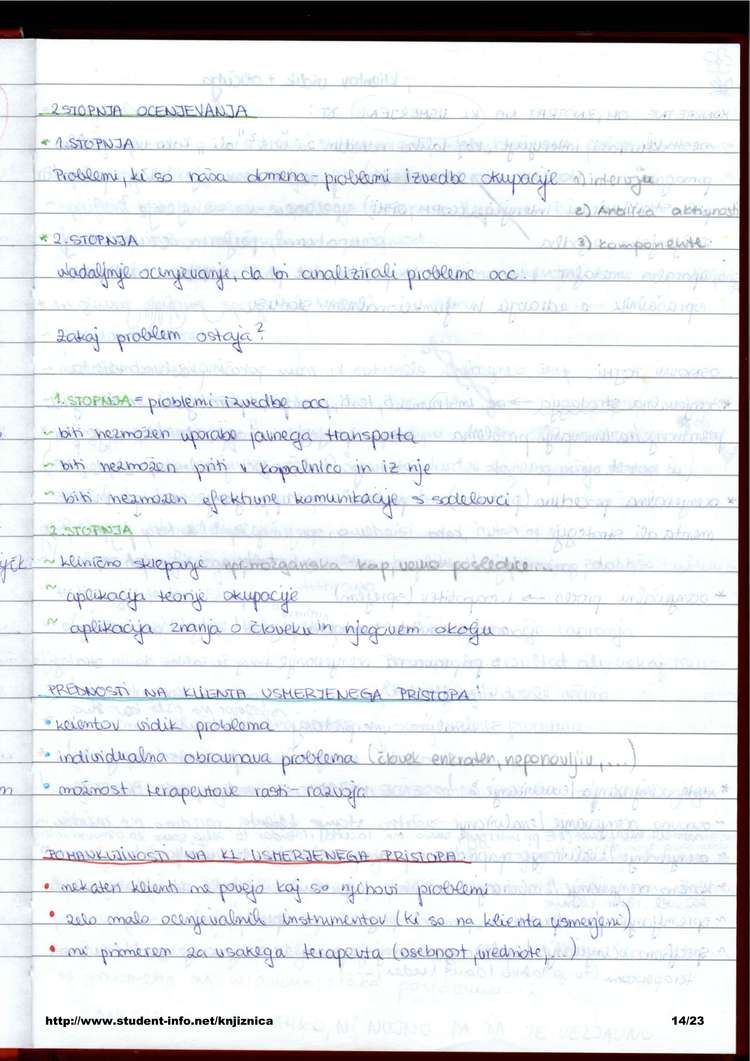 2 STOPNJA OCENJEVANJA
* 1. STOPNJA
Problemi, ki so naša domena - problemi izvedbe okupacije 1) intervju
2) Analiza aktivnosti
* 2. STOPNJA 3) komponente.
Nadaljnje ocenjevanje, da bi analizirali probleme occ.
Zakaj problem ostaja?
1. STOPNJA = problemi izvedbe occ
~ biti nezmožen uporabe javnega transporta
~ biti nezmožen priti v kopalnico in iz nje
~ biti nezmožen efektivne komunikacije s sodelovci
2. STOPNJA
~ klinično sklepanje npr. možganska kap, vemo posledice
~ aplikacija teorije okupacije
~ aplikacija znanja o človeku in njegovem okolju
PREDNOSTI NA KLIENTA USMERJENEGA PRISTOPA:
• klientov vidik problema
• individualna obravnava problema (človek enkraten, neponovljiv, ...)
• možnost terapeutove rasti - razvoja
POMANKLJIVOSTI NA KL. USMERJENEGA PRISTOPA:
• nekateri klienti ne povejo kaj so njihovi problemi
• zelo malo ocenjevalnih instrumentov (ki so na klienta usmerjeni)
• ni primeren za vsakega terapevta (osebnost, vrednote, ...)
http://www.student-info.net/knjiznica 14/23